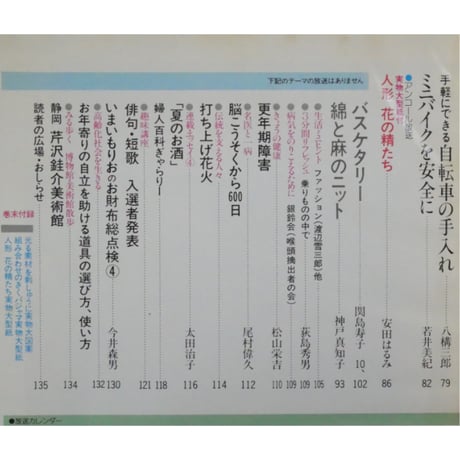 手軽にできる自転車の手入れ 八構三郎 79
ミニバイクを安全に 若井美紀 82
●アンコール放送
人形 花の精たち 実物大型紙付 安田はるみ 86
下記のテーマの放送はありません
バスケタリー 関島寿子 10、102
綿と麻のニット 神戸真知子 93
●生活・ミニヒント ファッション(渡辺雪三郎)他 105
●3分間リフレッシュ 乗りものの中で 荻島秀男 109
●病気をのりこえるために 銀鈴会(喉頭摘出者の会) 109
●きょうの健康
更年期障害 松山栄吉 110
●名医と一病
脳こうそくから600日 尾村偉久 112
●伝統を支える人々
打ち上げ花火 114
●連載・エッセイ④
「夏のお酒」 太田治子 116
婦人百科ぎゃらりー 118
●趣味講座
俳句・短歌 入選者発表 121
いまいもりおのお財布総点検④ 今井森男 130
●高齢化社会を生きる
お年寄りの自立を助ける道具の選び方、使い方 132
●みる歩く 博物館・美術館散歩
静岡 芹沢銈介美術館 134
読者の広場・おしらせ 135
巻末付録
元る素材を刺しゅうに実物大図案
組み合わせのきくパジャマ実物大型紙
人形 花の精たち実物大型紙
●放送カレンダー